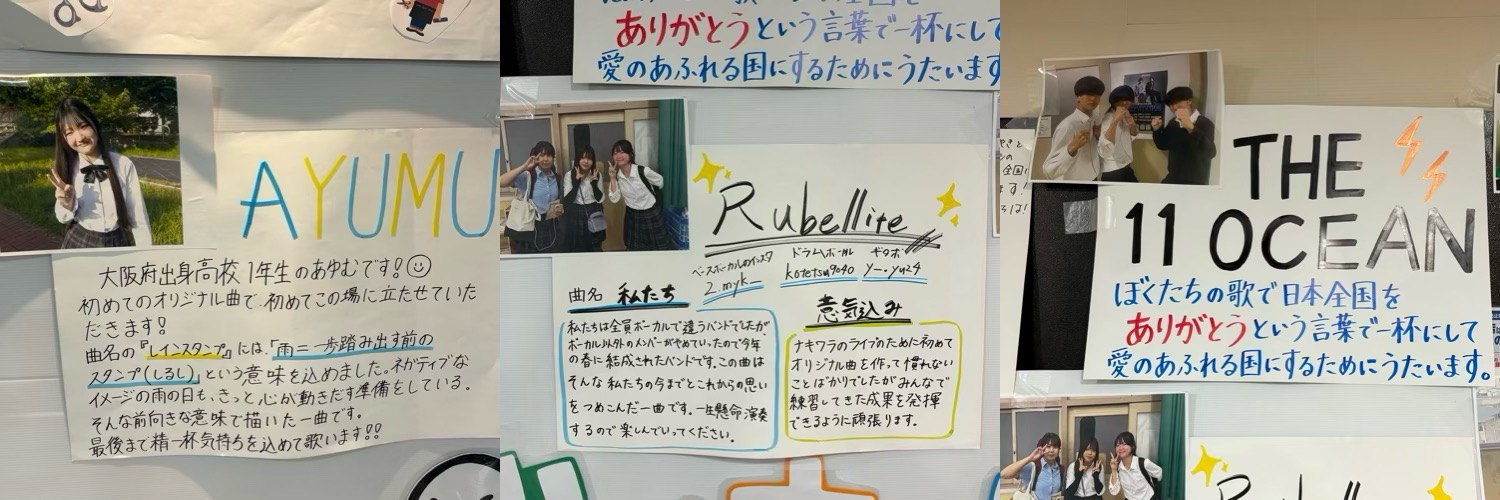 AYUMU
大阪府出身高校1年生のあゆむです!
初めてのオリジナル曲で、初めてこの場に立たせていた
だきます!
曲名の『レインスタンプ』には、「雨=一歩踏み出す前の
スタンプ(しるし)」という意味を込めました。ネガティブな
イメージの雨の日も、きっと、心が動きだす準備をしている。
そんな前向きな意味で描いた一曲です。
最後まで精一杯気持ちを込めて歌います!!
ありがとうという言葉で一杯にして
愛のあふれる国にするためにうたいます
Rubellite
ベースボーカルのインスタ
2.myk_
ドラムボーカル
kotetsu9040
ギタボ
y--yu24
曲名 私たち
私たちは全員ボーカルで違うバンドでしたが、
ボーカル以外のメンバーがやめていったので今年
の春に結成されたバンドです。この曲は
そんな私たちの今までとこれからの思い
をつめこんだ一曲です。一生懸命演奏
するので楽しんでいってください。
意気込み
ナキワラのライブのために初めて
オリジナル曲を作って慣れない
ことばかりでしたがみんなで
練習してきた成果を発揮
できるように頑張ります。
THE
11 OCEAN
ぼくたちの歌で日本全国を
ありがとうという言葉で一杯にして
愛のあふれる国にするためにうたいます。
Rubellite